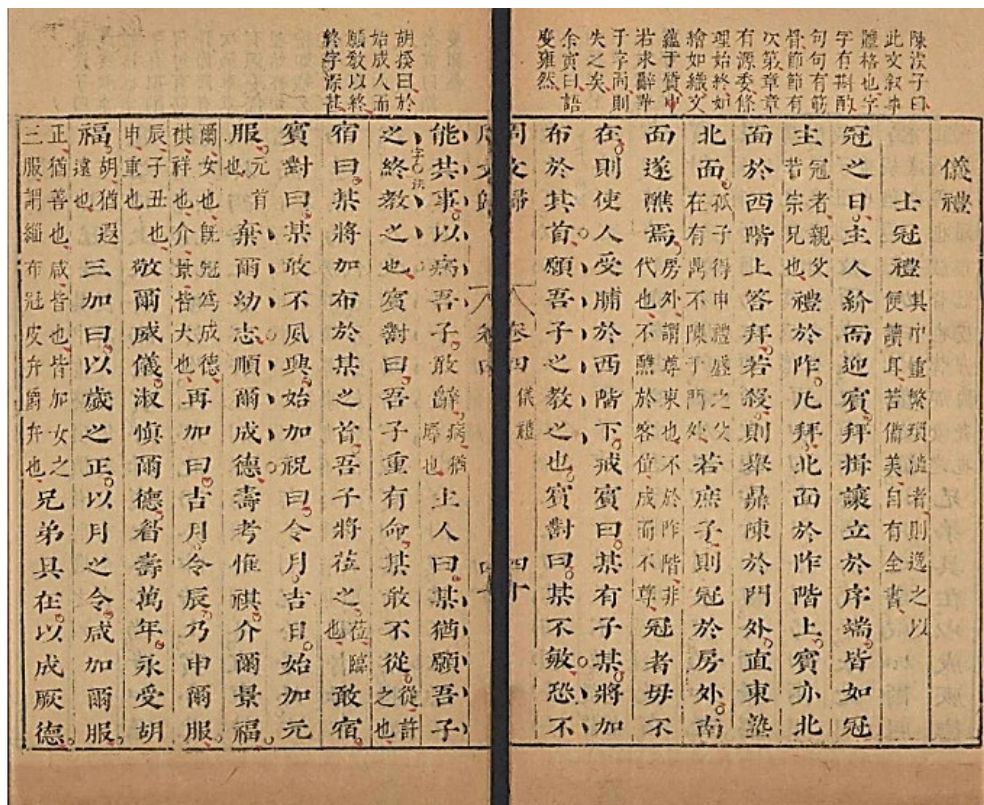 陳淏子曰
此文叙事
體格也字
字有斟酌
句句有筋
骨節節有
次第章章
有源委條
理始終如
繪如織文
蘊于質中
若求辭
子字尚則
失之矣
余寅曰語
度雍然
儀禮
士冠禮其中重繁瑣澁者則逸之以便讀耳若備美自有全書
冠之日主人紒而迎賓拜揖讓立於序端皆如冠
主冠者親父若宗兄也禮於阼凡拜北面於阼階上賓亦北
面於西階上答拜若殺則舉鼎陳於門外直東塾
北面孤子得申禮盛之父在有鼎不陳于門外若庶子則冠於房外南
面遂醮焉房外謂尊東也不於阼階非代也不醮於客位成而不尊冠者毋不
在則使人受脯於西階下戒賓曰某有子某將加
布於其首願吾子之教之也賓對曰某不敏恐不
周文歸 卷四 儀禮 四十
胡揆曰於
始成人而
願教以終
終字深甚
能共事以病吾子敢辭病猶辱也主人曰某猶願吾子
字法
之終教之也賓對曰吾子重有命某敢不從從許之也
宿曰某將加布於某之首吾子將莅之莅臨也敢宿
賓對曰某敢不夙興始加祝曰令月吉日始加元
服元首也棄爾幼志順爾成德壽考惟祺介爾景福
爾女也既冠為成德祺祥也介景皆大也再加曰吉月令辰乃申爾服
辰子丑也申重也敬爾威儀淑慎爾德眉壽萬年永受胡
福胡猶遐遠也三加曰以歲之正以月之令咸加爾服
正猶善也咸皆也皆加女之三服謂緇布冠皮弁爵弁也兄弟具在以成厥德